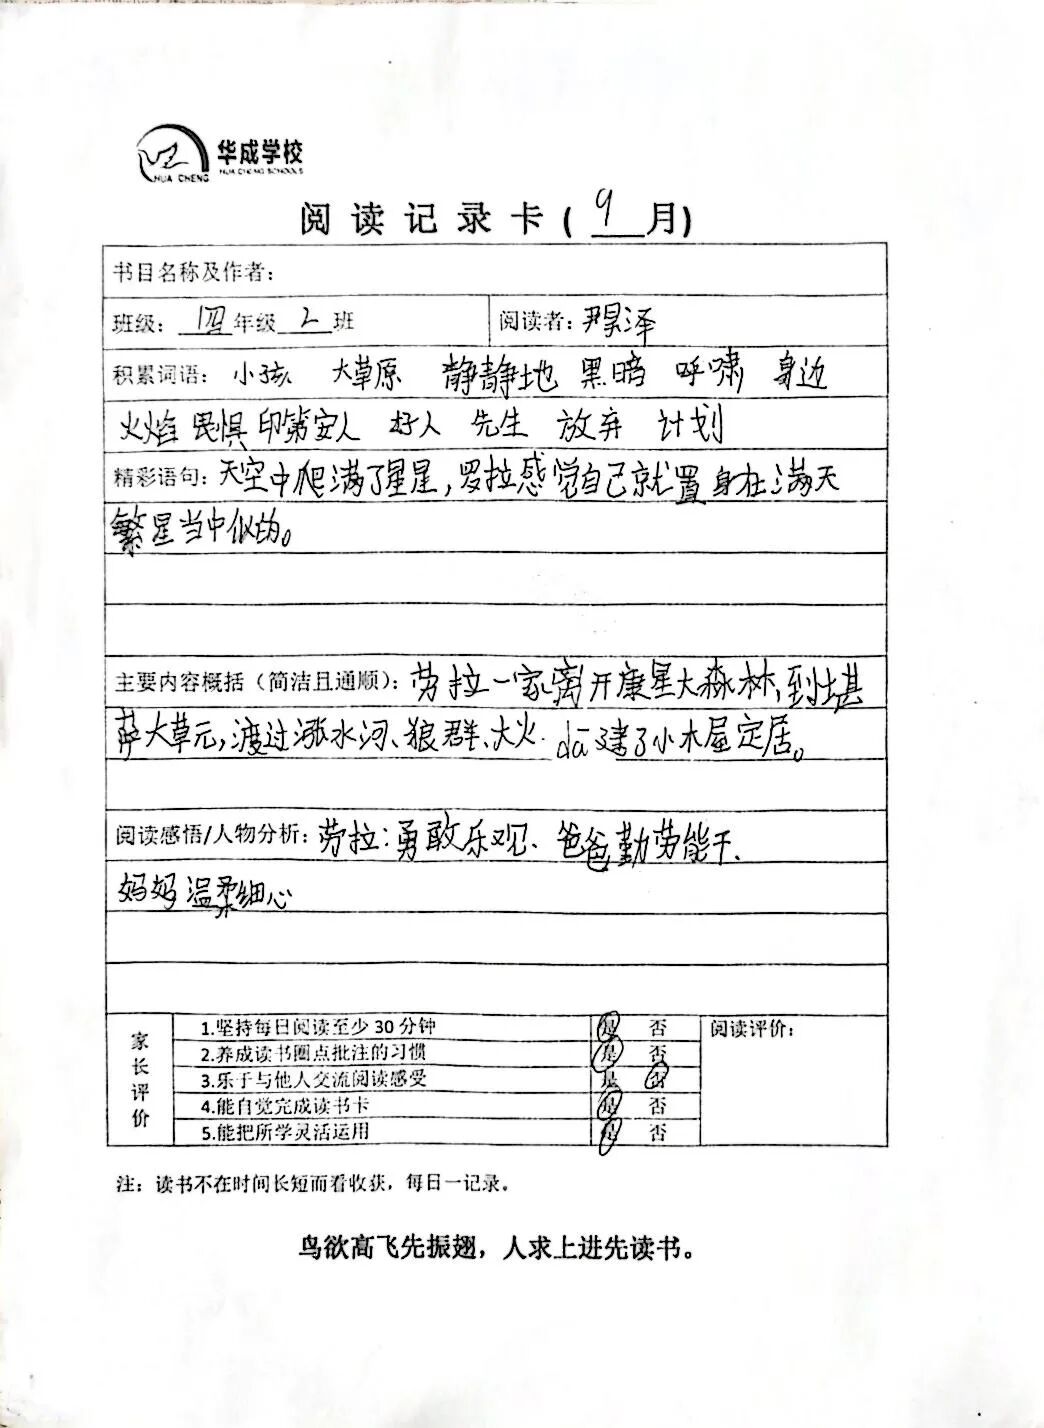 华成学校
HUA CHENG SCHOOLS
HUA CHENG
阅读记录卡(9月)
书目名称及作者：
班级：四年级2班 阅读者：尹昊泽
积累词语：小孩 大草原 静静地 黑暗 呼啸 身边
火焰 畏惧 印第安人 好人 先生 放弃 计划
精彩语句：天空中爬满了星星，罗拉感觉自己就置身在满天
繁星当中似的。
主要内容概括（简洁且通顺）：劳拉一家离开康星大森林，到堪
萨大草元，渡过涨水河、狼群、大火.dā建了小木屋定居。
阅读感悟/人物分析：劳拉：勇敢乐观、爸爸勤劳能干、
妈妈温柔细心
家长评价
1.坚持每日阅读至少30分钟 是 否 阅读评价：
2.养成读书圈点批注的习惯 是 否
3.乐于与他人交流阅读感受 是 否
4.能自觉完成读书卡 是 否
5.能把所学灵活运用 是 否
注：读书不在时间长短而看收获，每日一记录。
鸟欲高飞先振翅，人求上进先读书。